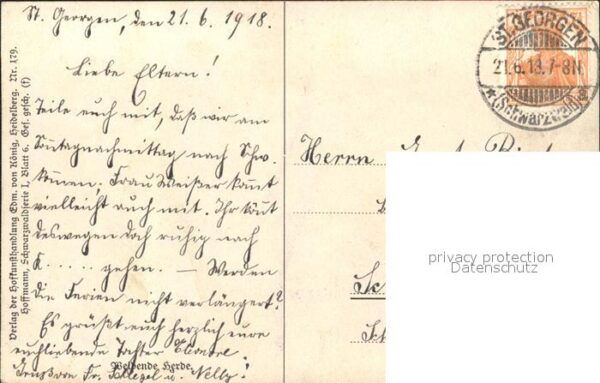 St. Georgen, den 21. 6. 1918.
Liebe Eltern!
Teile euch mit, daß wir am
Sonntagnachmittag nach Schw.
kommen; Frau Weißer kommt
vielleicht auch mit. Ihr könnt
deswegen doch ruhig nach
K..... gehen. — Werden
die Ferien nicht verlängert?
Es grüßt euch herzlich eure
euchliebende Tochter
Fr. Schlegel u. Nelly!
Weidende Herde.
Verlag der Hofkunsthandlung Edm. von König, Heidelberg. Nr. 179.
Hoffmann, Schwarzwaldserie I, Blatt 6. Ges. gesch. (f)
ST. GEORGEN
21.6.18.7-8N
* (Schwarzwald) a
Herrn
privacy protection
Datenschutz